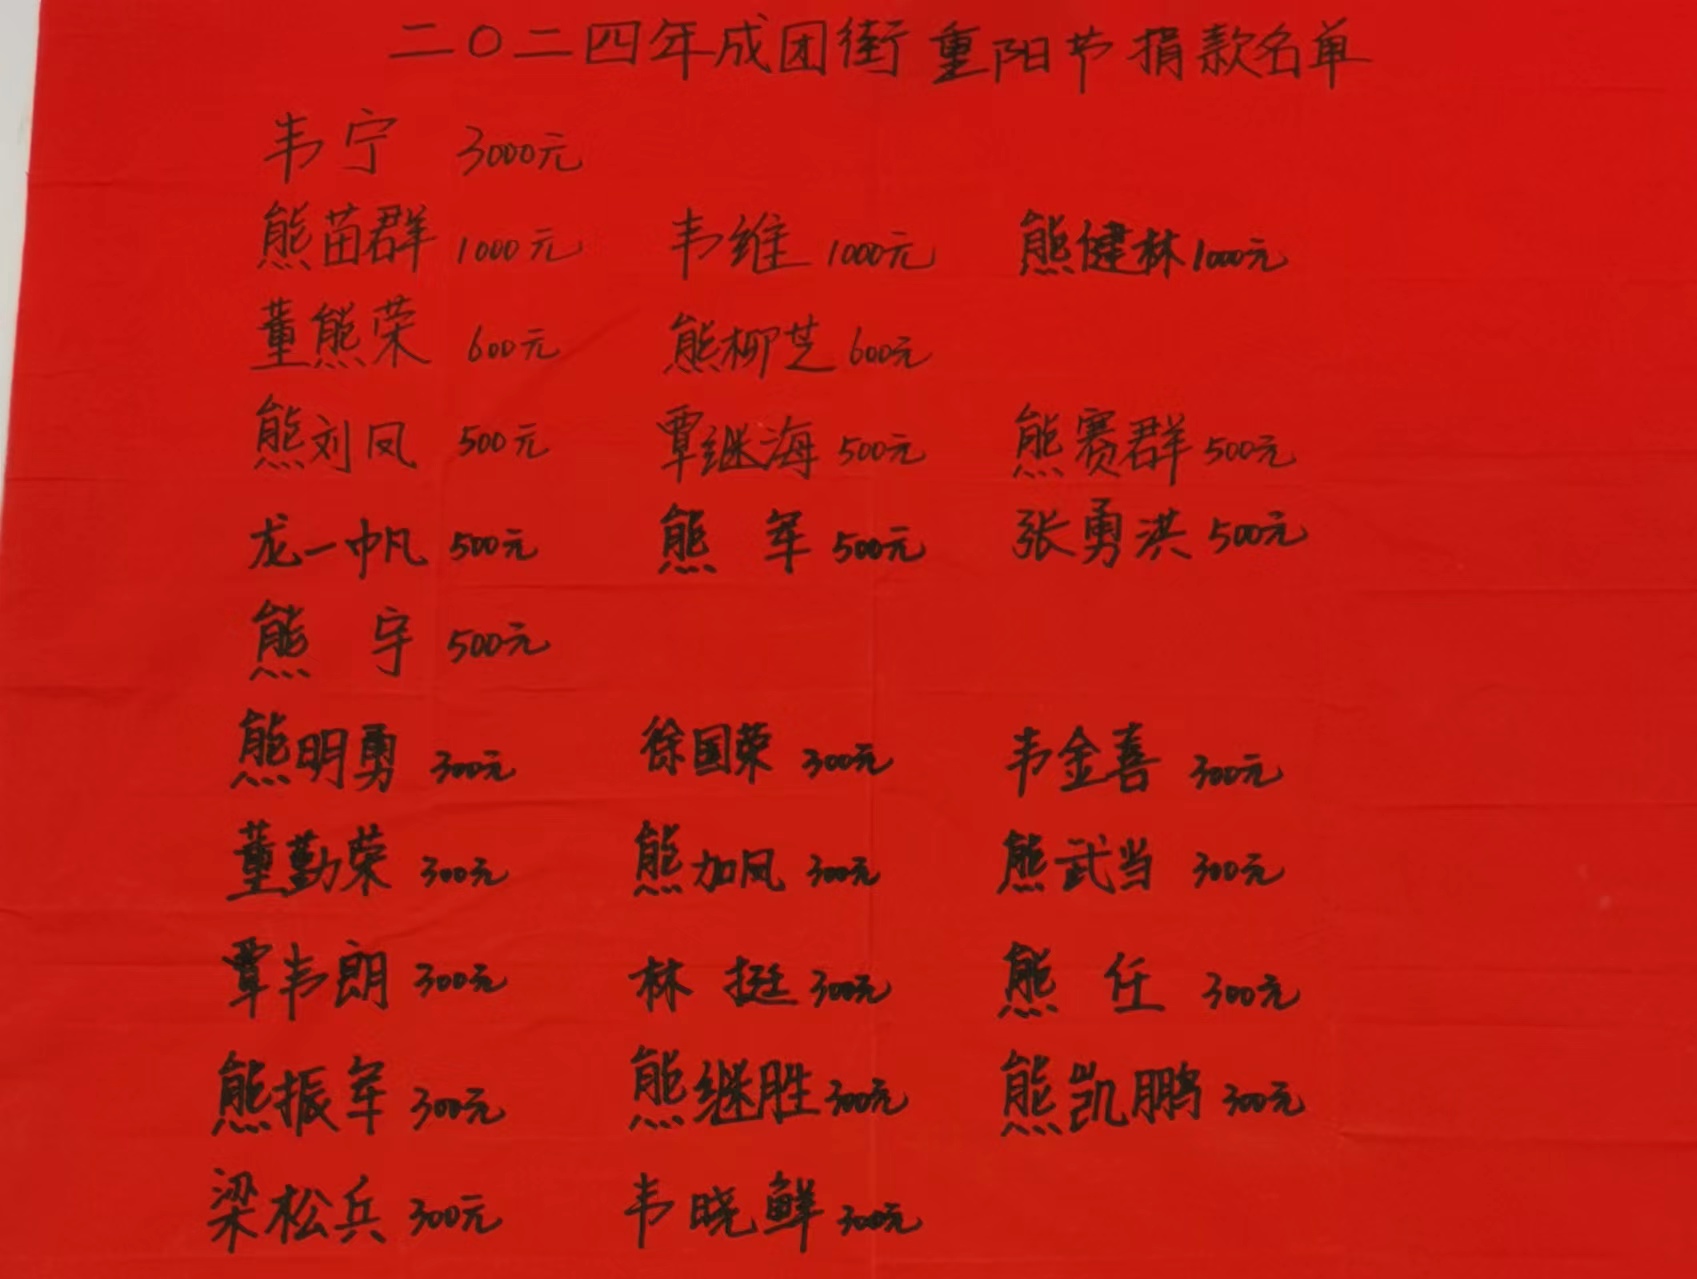 二〇二四年成团街重阳节捐款名单
韦宁 3000元
熊苗群 1000元 韦维 1000元 熊健林 1000元
董熊荣 600元 熊柳芝 600元
熊刘凤 500元 覃继海 500元 熊赛群 500元
龙一帆 500元 熊军 500元 张勇洪 500元
熊宇 500元
熊明勇 300元 徐国荣 300元 韦金喜 300元
董勤荣 300元 熊加凤 300元 熊武当 300元
覃韦朗 300元 林挺 300元 熊任 300元
熊振军 300元 熊继胜 300元 熊凯鹏 300元
梁松兵 300元 韦晓鲜 300元